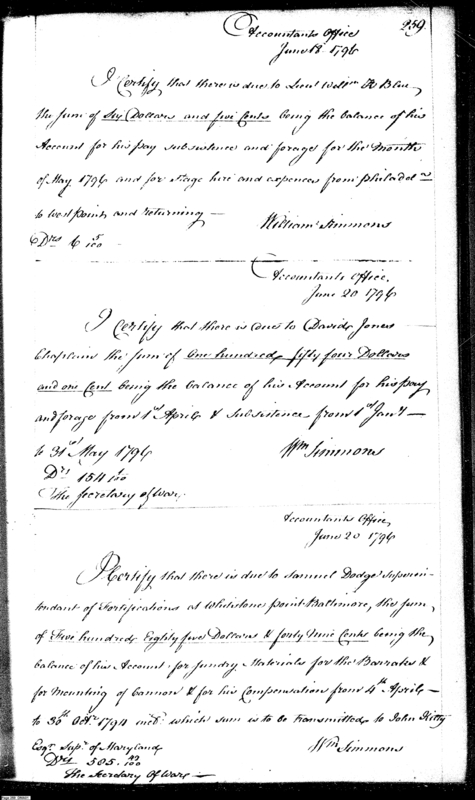 259
Accountants Office
June 18. 1796
I Certify that there is due to Lieut Willm A Blue,
the sum of Six Dollars and five Cents being the balance of his
Account for his pay subsistence and forage for the Month
of May 1796 and for stage hire and expences from Philadela
to West point and returning —
William Simmons
Drs 6 5/100
Accountants Office,
June 20 1796
I Certify that there is due to David Jones
Chaplain the sum of One hundred fifty four Dollars
and one Cent being the balance of his Account for his pay
and forage from 1st April & Subsistence from 1st Jany —
to 31st May 1796
Wm Simmons
Drs 154 1/100
The Secretary of War.
Accountants Office,
June 20 1796
I Certify that there is due to Samuel Dodge Superin-
tendant of Fortifications at Whitstone point Baltimore, the sum
of Five hundred Eighty five Dollars & forty Nine Cents being the
balance of his Account for sundry Materials for the Barracks &
for Mounting of Cannon & for his Compensation from 4th April —
to 30th Octr 1794 incls. which sum is to be transmitted to John Kilty
Esqr. Supr. of Maryland
Wm Simmons
Drs 585. 49/100
The Secretary Of War —